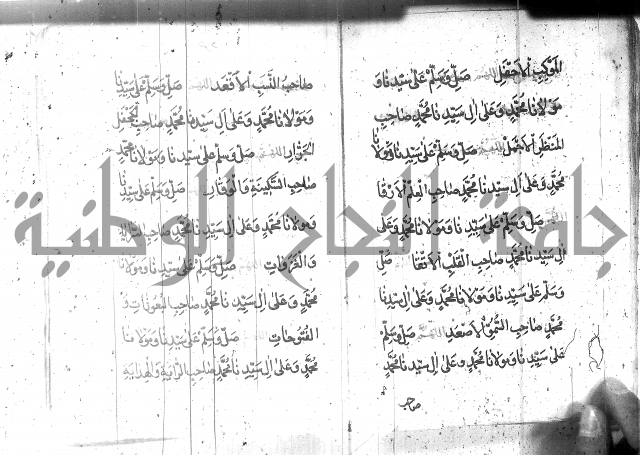 الموكب الاحفل اللهم صل وسلم على سيدنا و
مولانا محمد وعلى ال سيدنا محمد صاحب
المنظر الاجمل اللهم صل وسلم على سيدنا ومولانا
محمد وعلى ال سيدنا محمد صاحب
اللهم صل وسلم على سيدنا ومولانا محمد وعلى
ال سيدنا محمد صاحب القلب اللهم صل
وسلم على سيدنا ومولانا محمد وعلى ال سيدنا
محمد صاحب الاصعد اللهم صل وسلم
على سيدنا ومولانا محمد وعلى ال سيدنا محمد
صاحب
صاحب النسب الاقعد اللهم صل وسلم على سيدنا
ومولانا محمد وعلى ال سيدنا محمد صاحب
اللهم صل وسلم على سيدنا ومولانا محمد
صاحب السكينة والوقار صل وسلم على سيدنا
ومولانا محمد وعلى ال سيدنا محمد صاحب
والغزوات صل وسلم على سيدنا ومولانا
محمد وعلى ال سيدنا محمد صاحب و
الفتوحات اللهم صل وسلم على سيدنا ومولانا
محمد وعلى ال سيدنا محمد صاحب الراية والهداية
جامعة النجاح الوطنية